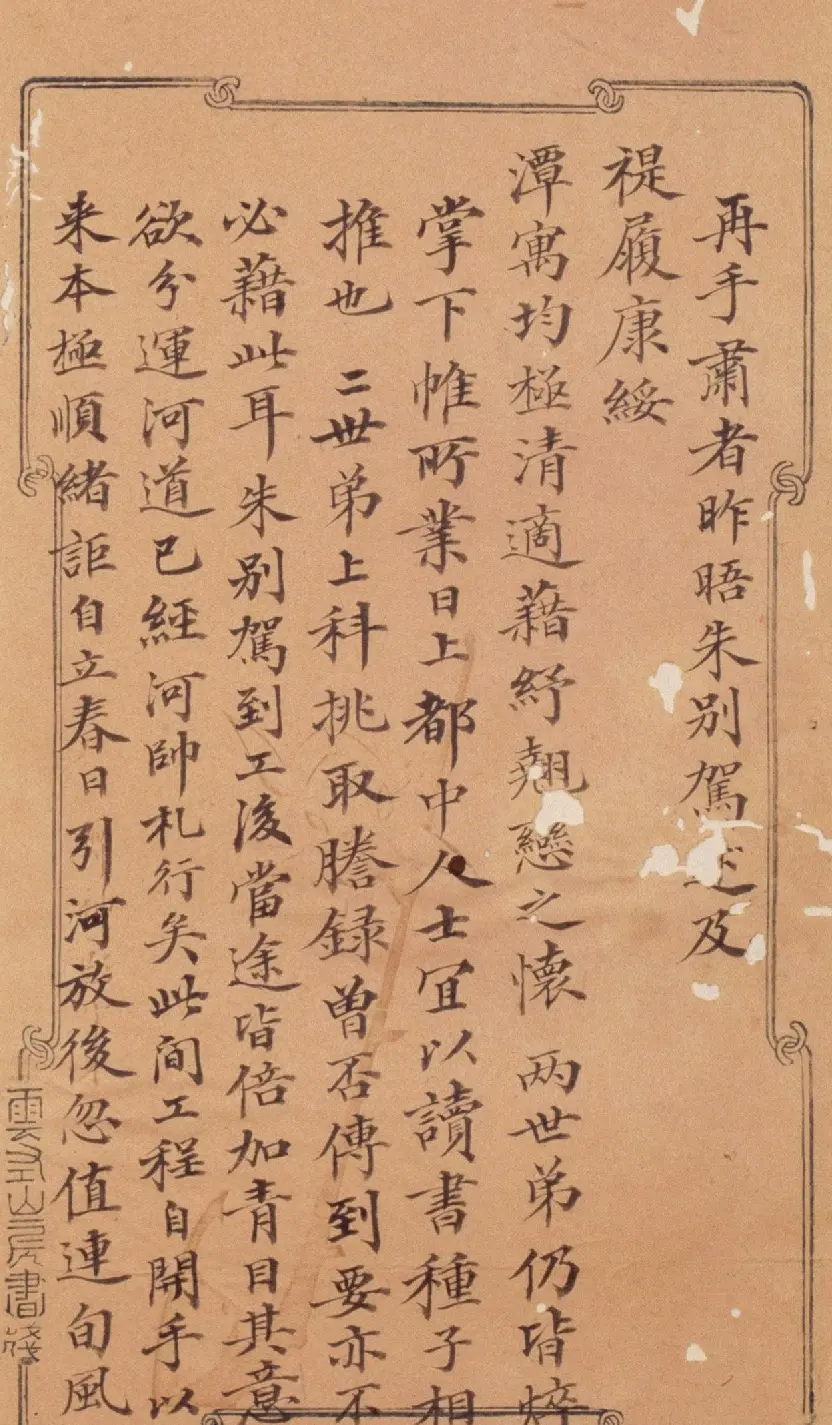 再手肅者昨晤朱別駕述及
禔履康綏
潭寓均極清適藉紓翹戀之懷 兩世弟仍皆焠
掌下帷所業日上都中人士宜以讀書種子相
推也 二世弟上科挑取謄錄曾否傳到要亦不
必藉此耳朱別駕到工後當途皆倍加青目其意
欲分運河道已經河帥札行矣此間工程自開手以
来本極順緒詎自立春日引河放後忽值連旬風
山房書箋